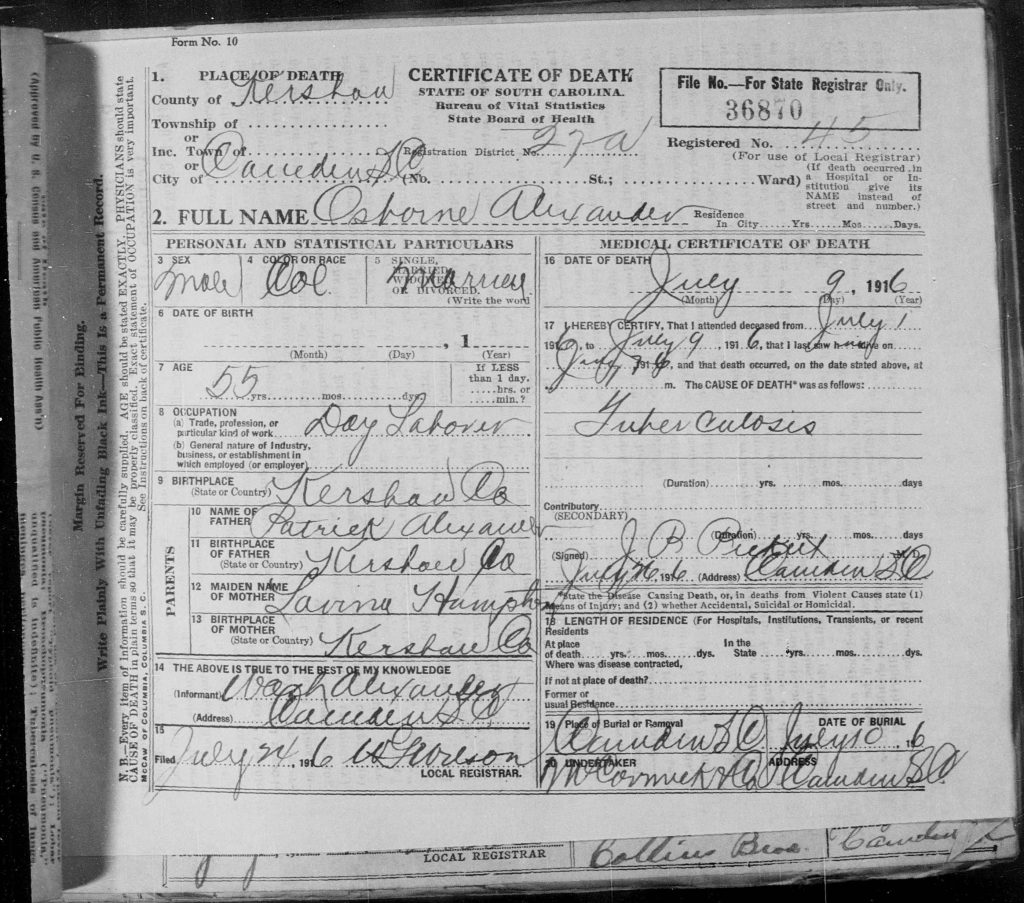 Form No. 10
1. PLACE OF DEATH
County of Kershaw
Township of
or
Inc. Town of
or
City of Camden S C
CERTIFICATE OF DEATH
STATE OF SOUTH CAROLINA.
Bureau of Vital Statistics
State Board of Health
Registration District No. 27a
(No. St.; Ward)
File No.—For State Registrar Only.
36870
Registered No. 45
(For use of Local Registrar)
(If death occurred in
a Hospital or In-
stitution give its
NAME instead of
street and number.)
2. FULL NAME Osborne Alexander
Residence
In City Yrs. Mos. Days.
PERSONAL AND STATISTICAL PARTICULARS
3 SEX
Male
4 COLOR OR RACE
Col
5 SINGLE,
MARRIED,
WIDOWED,
OR DIVORCED.
(Write the word
Married
6 DATE OF BIRTH
, 1
(Month) (Day) (Year)
7 AGE
55 yrs. mos. days
If LESS
than 1 day.
hrs. or
min.?
8 OCCUPATION
(a) Trade, profession, or
particular kind of work Day Laborer
(b) General nature of Industry,
business, or establishment in
which employed (or employer)
9 BIRTHPLACE
(State or Country) Kershaw Co
PARENTS
10 NAME OF
FATHER Patrick Alexander
11 BIRTHPLACE
OF FATHER
(State or Country) Kershaw Co
12 MAIDEN NAME
OF MOTHER Lavina
13 BIRTHPLACE
OF MOTHER
(State or Country) Kershaw Co
14 THE ABOVE IS TRUE TO THE BEST OF MY KNOWLEDGE
(Informant) Wash Alexander
(Address) Camden S C
15
Filed July 24 1916
LOCAL REGISTRAR.
MEDICAL CERTIFICATE OF DEATH
16 DATE OF DEATH
July 9, 1916
(Month) (Day) (Year)
17 I HEREBY CERTIFY, That I attended deceased from July 1
1916, to July 9 1916, that I last saw h alive on
July 7 1916, and that death occurred, on the date stated above, at
m. The CAUSE OF DEATH* was as follows:
Tuberculosis
(Duration) yrs. mos. days
Contributory
(SECONDARY)
(Duration) yrs. mos. days
(Signed) J B M.D.
July 1916 (Address) Camden S C
*State the Disease Causing Death, or, in deaths from Violent Causes state (1)
Means of Injury; and (2) whether Accidental, Suicidal or Homicidal.
18 LENGTH OF RESIDENCE (For Hospitals, Institutions, Transients, or recent
Residents
At place
of death yrs. mos. dys.
In the
State yrs. mos. dys.
Where was disease contracted,
If not at place of death?
Former or
usual Residence
19 Place of Burial or Removal
Camden S C
DATE OF BURIAL
July 10 1916
20 UNDERTAKER
McCormick & Co
ADDRESS
Camden S C
LOCAL REGISTRAR
Collins Bros.
Camden
(Approved by U. S. Census and American Public Health Ass'n)
Margin Reserved For Binding.
Write Plainly With Unfading Black Ink—This Is a Permanent Record.
N. B.—Every item of information should be carefully supplied. AGE should be stated EXACTLY. PHYSICIANS should state
CAUSE OF DEATH in plain terms so that it may be properly classified. Exact statement of OCCUPATION is very important.
See Instructions on back of certificate.
McCAW OF COLUMBIA, COLUMBIA S. C.